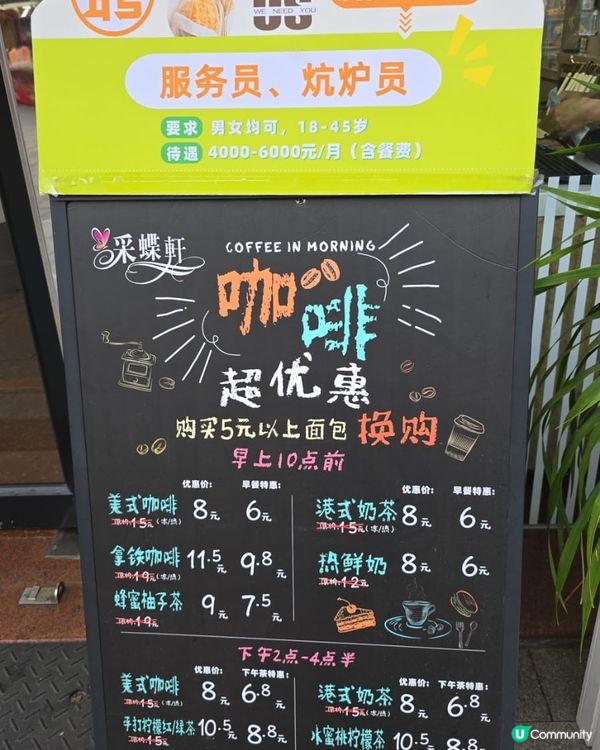 聘
US
WE NEED YOU
服务员、炕炉员
要求 男女均可，18-45岁
待遇 4000-6000元/月（含餐费）
采蝶軒
COFFEE IN MORNING
咖啡
超优惠
购买5元以上面包 换购
早上10点前
优惠价: 早餐特惠: 优惠价: 早餐特惠:
美式咖啡 8元 6元 港式奶茶 8元 6元
现价15元(冰/热) 现价15元(冰/热)
拿铁咖啡 11.5元 9.8元 热鲜奶 8元 6元
现价19元(冰/热) 现价12元
蜂蜜柚子茶 9元 7.5元
现价19元
下午2点-4点半
优惠价: 下午茶特惠: 优惠价: 下午茶特惠:
美式咖啡 8元 6.8元 港式奶茶 8元 6.8元
现价15元(冰/热) 现价15元(冰/热)
手打柠檬红/绿茶 10.5元 8.8元 水蜜桃柠檬茶 10.5 8.8
现价15元
U Community